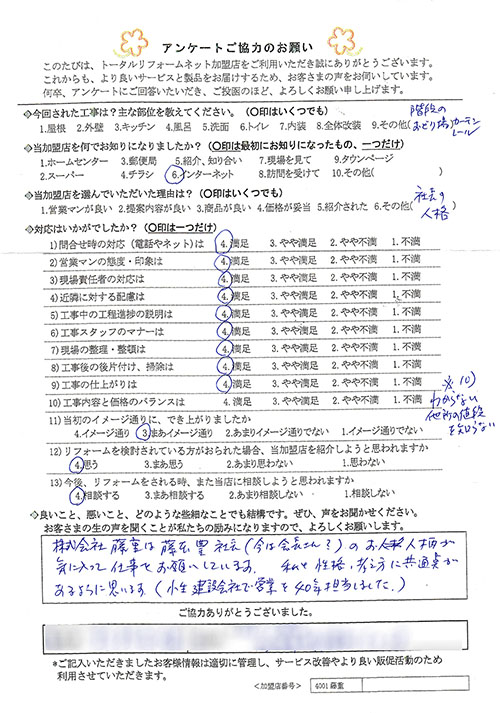 アンケートご協力のお願い
このたびは、トータルリフォームネット加盟店をご利用いただき誠にありがとうございます。
これからも、より良いサービスと製品をお届けするため、お客さまの声をお伺いしています。
何卒、アンケートにご回答いただき、ご投函のほど、よろしくお願い申し上げます。
◇今回された工事は？主な部位を教えてください。（〇印はいくつでも）
1.屋根 2.外壁 3.キッチン 4.風呂 5.洗面 6.トイレ 7.内装 8.全体改装 9.その他( 階段のおどり場カーテンレール )
◇当加盟店を何でお知りになりましたか？（〇印は最初にお知りになったもの、一つだけ）
1.ホームセンター 3.郵便局 5.紹介、知り合い 7.現場を見て 9.タウンページ
2.スーパー 4.チラシ 6.インターネット 8.訪問を受けて 10.その他( )
◇当加盟店を選んでいただいた理由は？（〇印はいくつでも）
1.営業マンが良い 2.提案内容が良い 3.商品が良い 4.価格が妥当 5.紹介された 6.その他( 社長の人格 )
◇対応はいかがでしたか？（〇印は一つだけ）
1)問合せ時の対応（電話やネット）は 4.満足 3.やや満足 2.やや不満 1.不満
2)営業マンの態度・印象は 4.満足 3.やや満足 2.やや不満 1.不満
3)現場責任者の対応は 4.満足 3.やや満足 2.やや不満 1.不満
4)近隣に対する配慮は 4.満足 3.やや満足 2.やや不満 1.不満
5)工事中の工程進捗の説明は 4.満足 3.やや満足 2.やや不満 1.不満
6)工事スタッフのマナーは 4.満足 3.やや満足 2.やや不満 1.不満
7)現場の整理・整頓は 4.満足 3.やや満足 2.やや不満 1.不満
8)工事後の後片付け、掃除は 4.満足 3.やや満足 2.やや不満 1.不満
9)工事の仕上がりは 4.満足 3.やや満足 2.やや不満 1.不満
10)工事内容と価格のバランスは 4.満足 3.やや満足 2.やや不満 1.不満
※10)
わからない
他所の値段
を知らない
11)当初のイメージ通りに、でき上がりましたか
4.イメージ通り 3.まあイメージ通り 2.あまりイメージ通りでない 1.イメージ通りでない
12)リフォームを検討されている方がおられた場合、当加盟店を紹介しようと思われますか
4.思う 3.まあ思う 2.あまり思わない 1.思わない
13)今後、リフォームをされる時、また当店に相談しようと思われますか
4.相談する 3.まあ相談する 2.あまり相談しない 1.相談しない
●良いこと、悪いこと、どのような些細なことでも結構です。ぜひ、声をお聞かせください。
お客さまの生の声を聞くことが私たちの励みになりますので、よろしくお願いします。
株式会社 藤重は 藤本 豊 社長（今は会長さん？）のお人柄が
気に入って仕事をお願いしています。私と性格、考え方に共通点が
あるように思います（小生 建設会社で営業を40年担当しました。）
ご協力ありがとうございました。
*ご記入いただきましたお客様情報は適切に管理し、サービス改善やより良い販促活動のため
利用させていただきます。
＜加盟店番号＞ 4001藤重